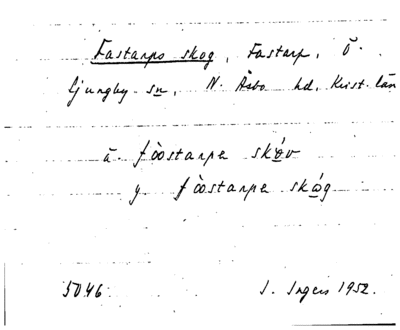 Fastarps skog, Fastarp, Ö.
Ljungby sn, N. Åsbo hd, Krist. län
ä. fòostarpa skóv
y. fòostarpa skóg
5046 I. Ingers 1952.